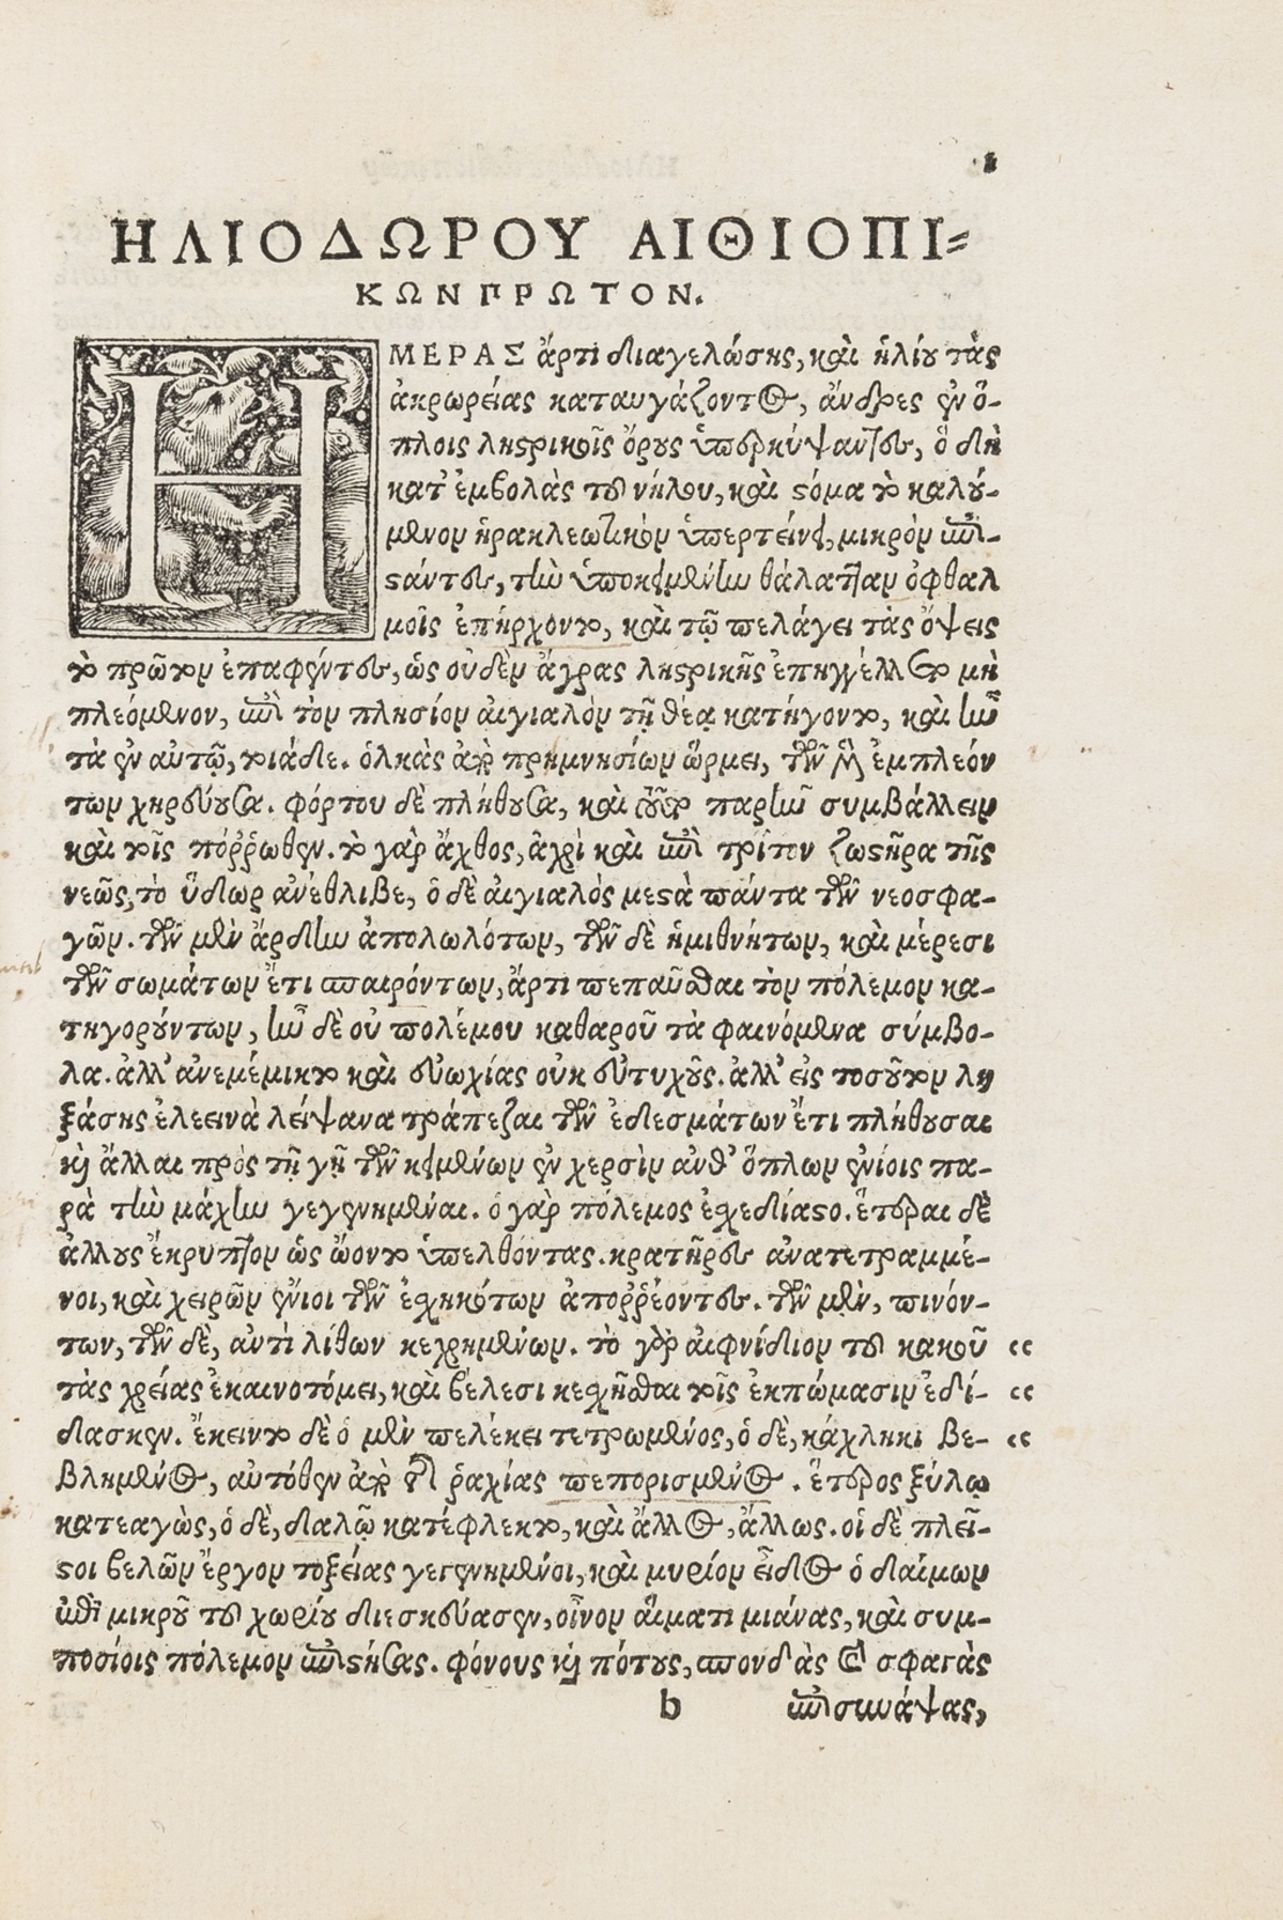 1
ΗΛΙΟΔΩΡΟΥ ΑΙΘΙΟΠΙ-
ΚΩΝ ΠΡΩΤΟΝ.
ΗΜΕΡΑΣ ἄρτι διαγελώσης, καὶ ἡλίου τὰς
ἀκρωρείας καταυγάζοντος, ἄνδρες ἐν ὅ-
πλοις λῃστρικοῖς ὄρους ὑπερκύψαντες, ὃ δὴ
κατ' ἐμβολὰς τοῦ νήλου, καὶ στόμα τὸ καλού-
μενον ἡρακλεωτικὸν ὑπερτείνει, μικρὸν ἐπι-
στάντες, τὴν ὑποκειμένην θάλατταν ὀφθαλ
μοῖς ἐπήρχοντο, καὶ τῷ πελάγει τὰς ὄψεις
τὸ πρῶτον ἐπαφέντες, ὡς οὐδὲν ἄγρας λῃστρικῆς ἐπηγγέλλετο μὴ
πλεόμενον, ἐπὶ τὸν πλησίον αἰγιαλὸν τῇ θέᾳ κατήγοντο, καὶ ἦν
τὰ ἐν αὐτῷ, τοιάδε. ὁλκὰς ἀπὸ πρημνησίων ὥρμει, τῶν μὲν ἐμπλεόν
των χηρεύουσα. φόρτου δὲ πλήθουσα, καὶ τοῦτο παρῆν συμβάλλειν
καὶ τοῖς πόῤῥωθεν. τὸ γὰρ ἄχθος, ἄχρι καὶ ἐπὶ τρίτου ζωστῆρα τῆς
νεῶς, τὸ ὕδωρ ἀνέθλιβε, ὁ δὲ αἰγιαλὸς μεστὰ πάντα τῶν νεοσφα-
γῶν. τῶν μὲν ἄρδην ἀπολωλότων, τῶν δὲ ἡμιθνήτων, καὶ μέρεσι
τῶν σωμάτων ἔτι σπαιρόντων, ἄρτι πεπαῦσθαι τὸν πόλεμον κα-
τηγορούντων, ἦν δὲ οὐ πολέμου καθαροῦ τὰ φαινόμενα σύμβο-
λα. ἀλλ' ἀνεμέμικτο καὶ εὐωχίας οὐκ εὐτυχοῦς. ἀλλ' εἰς τοσοῦτον λη
ξάσης ἐλεεινὰ λείψανα τράπεζαι τῶν ἐδεσμάτων ἔτι πλήθουσαι
καὶ ἄλλαι πρὸς τῇ γῇ τῶν κειμένων ἐν χερσὶν ἀνθ' ὅπλων ἐνίοις πα-
ρὰ τὴν μάχην γεγενημέναι. ὁ γὰρ πόλεμος ἐσχεδίαστο. ἕτεραι δὲ
ἄλλους ἔκρυπτον ὡς ᾤοντο ὑπελθόντας. κρατῆρες ἀνατετραμμέ-
νοι, καὶ χειρῶν ἔνιοι τῶν ἐσχηκότων ἀποῤῥέοντες. τῶν μὲν, πινόν-
των, τῶν δὲ, ἀντὶ λίθων κεχρημένων. τὸ γὰρ αἰφνίδιον τοῦ κακοῦ "
τὰς χρείας ἐκαινοτόμει, καὶ βέλεσι κεχρῆσθαι τοῖς ἐκπώμασιν ἐδί- "
δασκεν. ἔκειντο δὲ ὁ μὲν πελέκει τετρωμένος, ὁ δὲ, κάχληκι βε- "
βλημένος, αὐτόθεν ἀπὸ τῆς ῥαχίας πεπορισμένος. ἕτερος ξύλῳ
κατεαγὼς, ὁ δὲ, δαλῷ κατέφλεκτο, καὶ ἄλλος, ἄλλως. οἱ δὲ πλεῖ-
στοι βελῶν ἔργον τοξείας γεγενημένοι, καὶ μυρίον εἶδος ὁ δαίμων
ἐπὶ μικροῦ τοῦ χωρίου διεσκεύασεν, οἶνον αἵματι μιάνας, καὶ συμ-
ποσίοις πόλεμον ἐπιστήσας. φόνους καὶ πότους, σπονδὰς καὶ σφαγὰς
b ἐπισυνάψας,